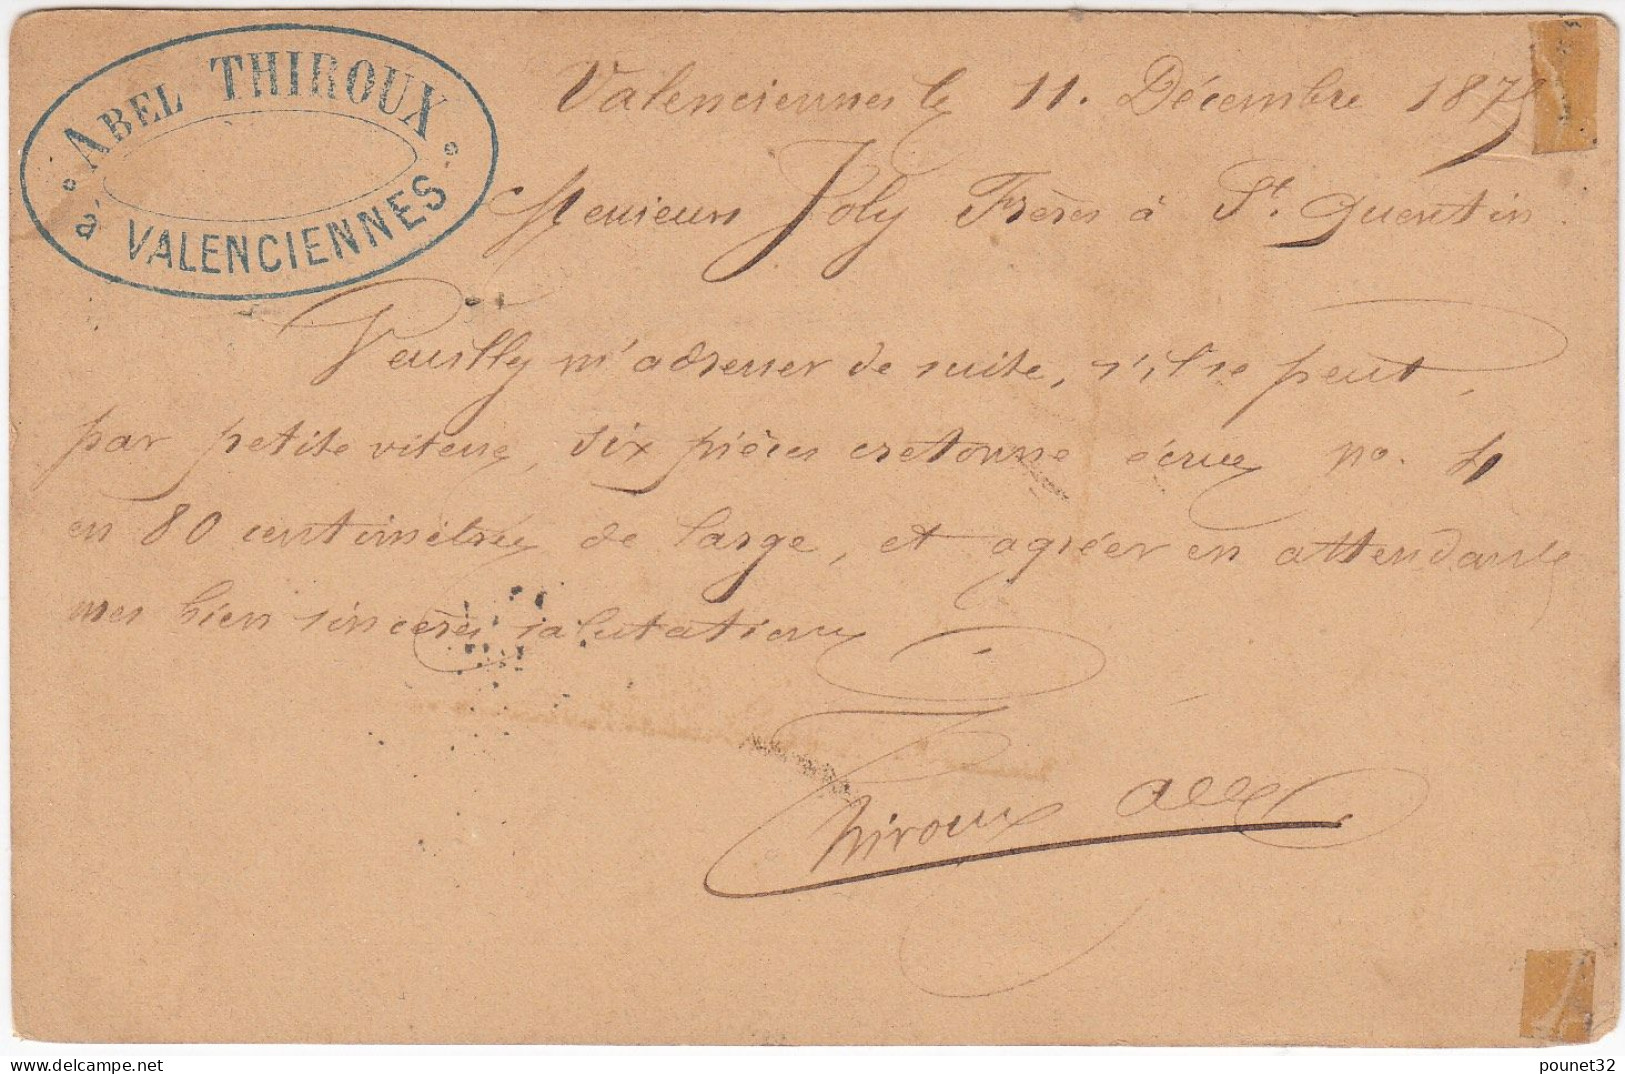 ABEL THIROUX
à VALENCIENNES
Valenciennes le 11. Décembre 187
Messieurs Joly Frères à St. Quentin.
Veuillez m'adresser de suite, s'il se peut,
par petite vitesse, six pièces cretonne écrue no. 4
en 80 centimètres de large, et agréer en attendant
mes bien sincères salutations
Thiroux
delcampe.net
pounet32